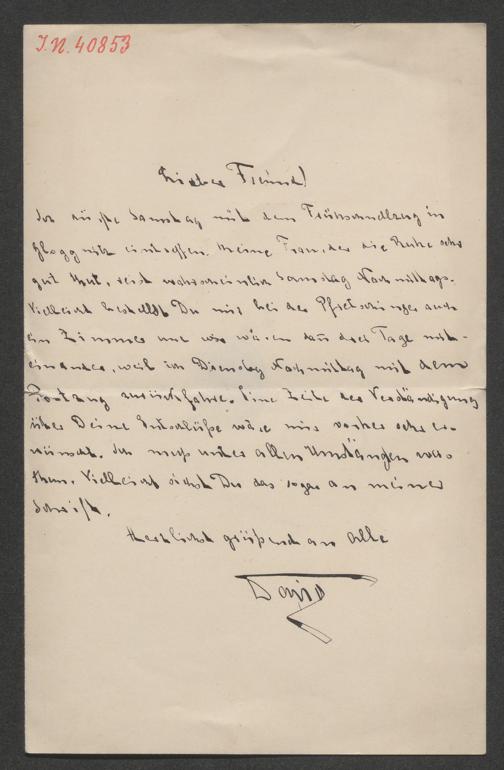 I.N. 40853
Lieber Freund!
Ich dürfte Samstag mit dem Frühsandlzug in
Gloggnitz eintreffen. Meine Frau, der die Ruhe sehr
gut thut, reist wahrscheinlich Samstag Nachmittags.
Vielleicht bestellst Du mir bei der Pfretschinger auch
ein Zimmer und wir wären dann drei Tage mit-
einander, weil ich Dienstag Nachmittag mit dem
zurückfahre. Eine Zeile der Verständigung
über Deine Entschlüße wäre mir vorher sehr er-
wünscht. Ich muß unter allen Umständen was
thun. Vielleicht siehst Du das sogar an meiner
Schrift.
Herzlichst grüßend an Alle
David